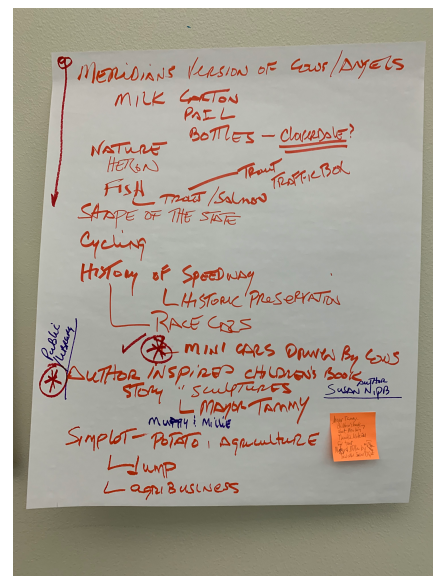 MERIDIANS VERSION OF COWS/ANGELS
MILK CARTON
PAIL
BOTTLES - CLOVERDALE?
NATURE
HERON
FISH
TROUT/SALMON
TROUT
TRAFFIC BOX
SHAPE OF THE STATE
CYCLING
HISTORY OF SPEEDWAY
HISTORIC PRESERVATION
RACE CARS
MINI CARS DRIVEN BY COWS
Public
Library
AUTHOR INSPIRED CHILDREN'S BOOK
STORY "SCULPTURES
AUTHOR
SUSAN NIPB
MAYOR TAMMY
MURPY & MILLIE
SIMPLOT - POTATO, AGRICULTURE
JUMP
AGRIBUSINESS